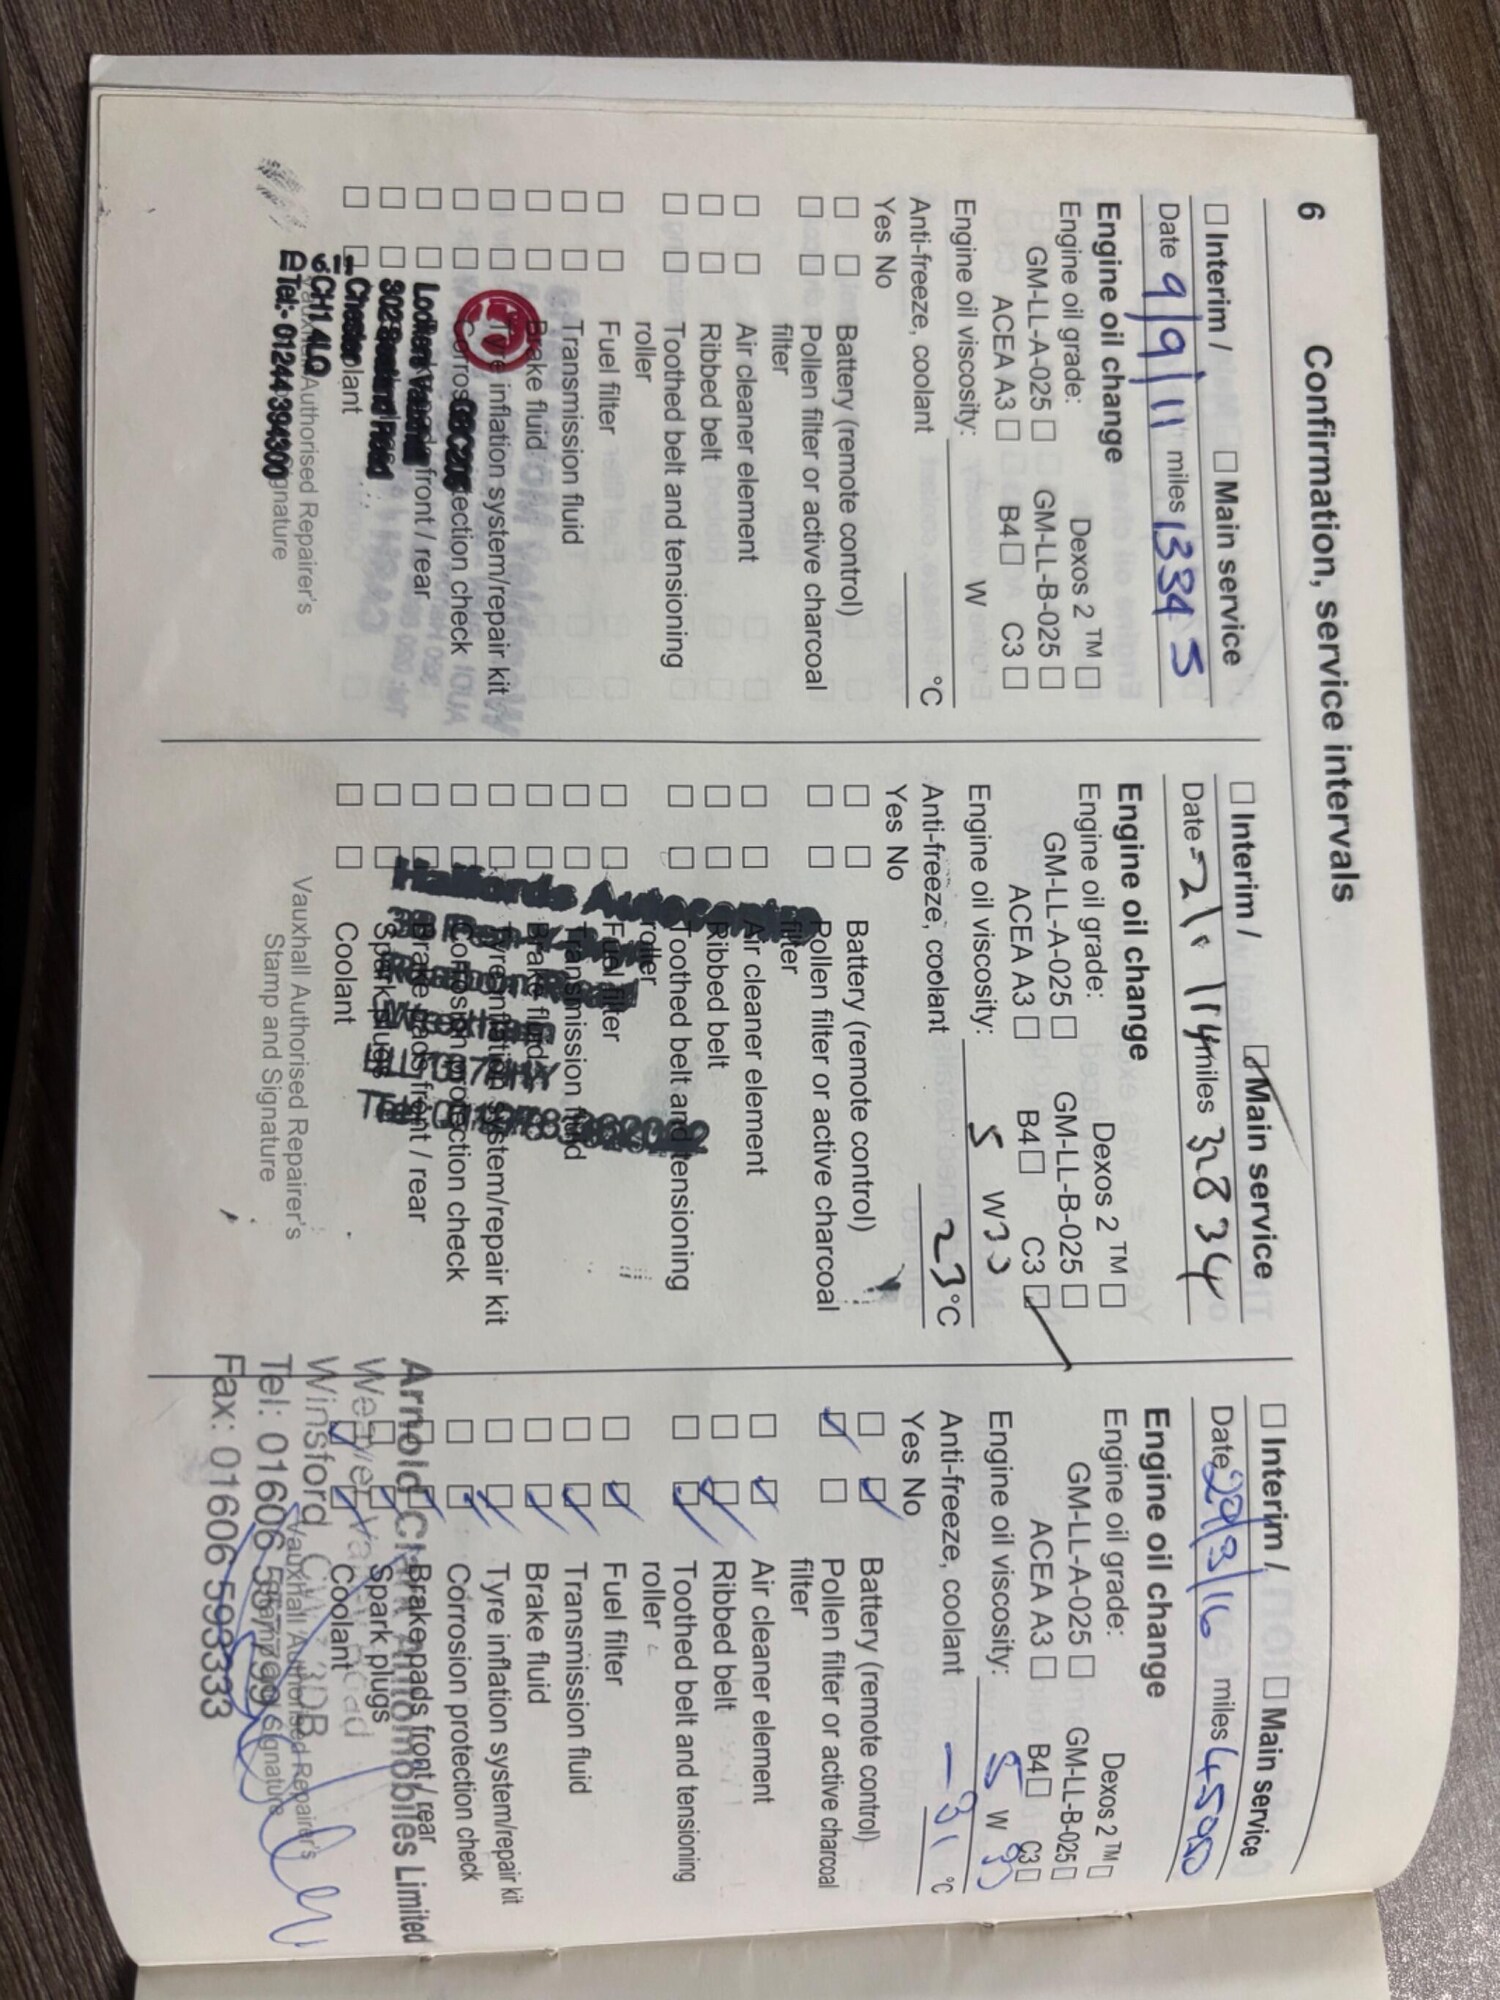 6
Confirmation, service intervals
☐ Interim / ☐ Main service
Date 9/9/11 miles 13345
Engine oil change
Engine oil grade: Dexos 2 ™ ☐
GM-LL-A-025 ☐ GM-LL-B-025 ☐
ACEA A3 ☐ B4 ☐ C3 ☐
Engine oil viscosity: W
Anti-freeze, coolant °C
Yes No
☐ ☐ Battery (remote control)
☐ ☐ Pollen filter or active charcoal
filter
☐ ☐ Air cleaner element
☐ ☐ Ribbed belt
☐ ☐ Toothed belt and tensioning
roller
☐ ☐ Fuel filter
☐ ☐ Transmission fluid
☐ ☐ Brake fluid
☐ ☐ Tyre inflation system/repair kit
☐ ☐ Corrosion protection check
☐ ☐ front / rear
☐ ☐
☐ ☐ Coolant
Vauxhall Authorised Repairer's
Signature
Chester
CH1 4LQ
Tel:- 01244 394300
☐ Interim / ☑ Main service
Date miles 32834
Engine oil change
Engine oil grade: Dexos 2 ™ ☐
GM-LL-A-025 ☐ GM-LL-B-025 ☐
ACEA A3 ☐ B4 ☐ C3 ☑
Engine oil viscosity: 5 W 30
Anti-freeze, coolant 23 °C
Yes No
☐ ☐ Battery (remote control)
☐ ☐ Pollen filter or active charcoal
filter
☐ ☐ Air cleaner element
☐ ☐ Ribbed belt
☐ ☐ Toothed belt and tensioning
roller
☐ ☐ Fuel filter
☐ ☐ Transmission fluid
☐ ☐ Brake fluid
☐ ☐ Tyre inflation system/repair kit
☐ ☐ Corrosion protection check
☐ ☐ Brake pads front / rear
☐ ☐ Spark plugs
☐ ☐ Coolant
Halfords Autocentre
Vauxhall Authorised Repairer's
Stamp and Signature
☐ Interim / ☐ Main service
Date miles
Engine oil change
Engine oil grade: Dexos 2 ™ ☐
GM-LL-A-025 ☐ GM-LL-B-025 ☐
ACEA A3 ☐ B4 ☐ C3 ☐
Engine oil viscosity: 5 W 30
Anti-freeze, coolant -31 °C
Yes No
☐ ☑ Battery (remote control)
☑ ☐ Pollen filter or active charcoal
filter
☐ ☑ Air cleaner element
☐ ☑ Ribbed belt
☐ ☑ Toothed belt and tensioning
roller
☐ ☑ Fuel filter
☐ ☑ Transmission fluid
☐ ☑ Brake fluid
☐ ☑ Tyre inflation system/repair kit
☐ ☑ Corrosion protection check
☐ ☑ Brake pads front / rear
☐ ☑ Spark plugs
☑ ☑ Coolant
Vauxhall Authorised Repairer's
Stamp and Signature
Arnold Clark Automobiles Limited
Weaver Road
Winsford
Tel: 01606
Fax: 01606 593333